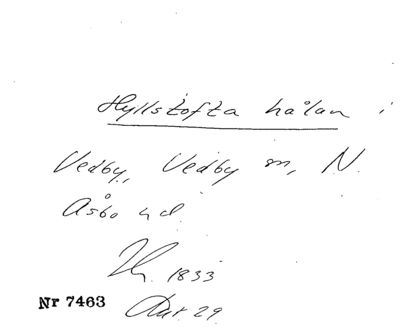 Hyllstofta hålan i
Vedby, Vedby sn, N.
Åsbo hd.
1833
Nr 7463 Akt 29